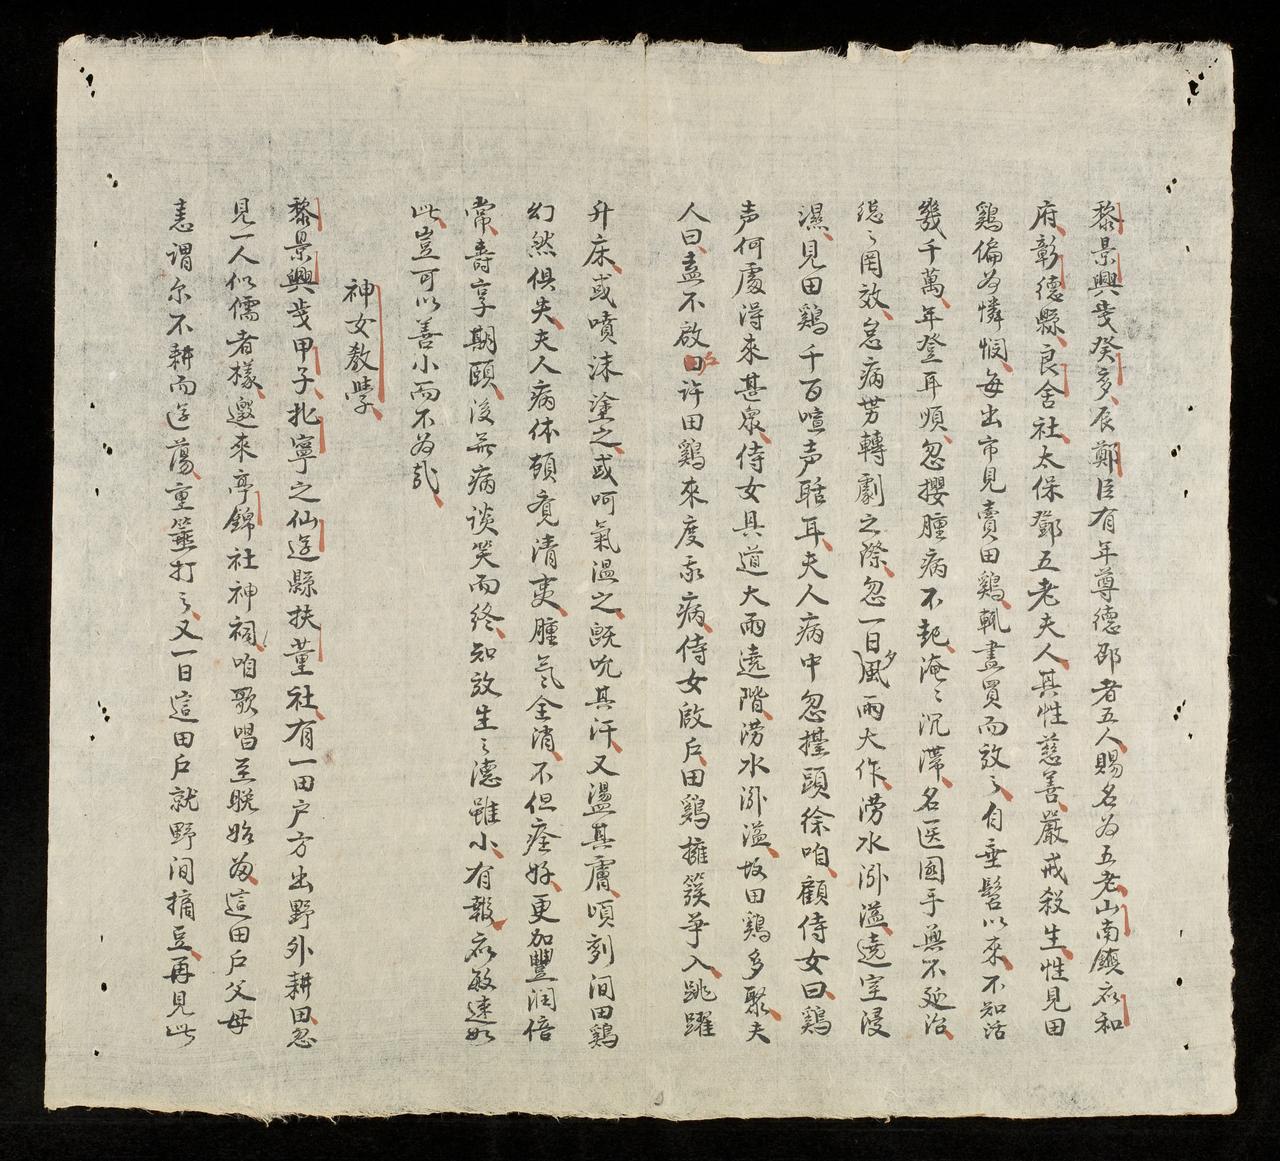 黎景興歲癸亥辰鄭臣有年尊德邵者五人賜名為五老山南鎮應和
府彰德縣良舍社太保鄧五老夫人其性慈善嚴戒殺生性見田
鷄偏為憐憫每出市見賣田鷄輒盡買而放之自垂髫以來不知活
幾千萬年登耳順忽攖腫病不起淹〻沉滯名医國手無不延治
總〻罔效怠病势轉劇之際忽一日夕風雨大作澇水泖溢遶室浸
濕見田鷄千百喧声聒耳夫人病中忽擡頭徐咱顧侍女曰鷄
声何處淂來甚衆侍女具道大雨遶階澇水泖溢故田鷄多聚夫
人曰盍不啟戸許田鷄來度我病侍女啟戶田鷄擁簇爭入跳躍
升床或噴沫塗之或呵氣温之既吮其汗又盪其膚頃刻间田鷄
幻然俱失夫人病体頓覔清爽腫氣全消不但痊好更加豐润倍
常壽享期頤後無病谈笑而終知放生之德雖小有報應敏速如
此豈可以善小而不為哉
神女教學
黎景興歲甲子北寧之仙遊縣扶董社有一田户方出野外耕田忽
見一人似儒者樣邀來亭錦社神祠咱歌唱至晚始為這田戶父母
恚謂尔不耕而遊蕩重箠打之又一日這田戶就野间摘豆再見此